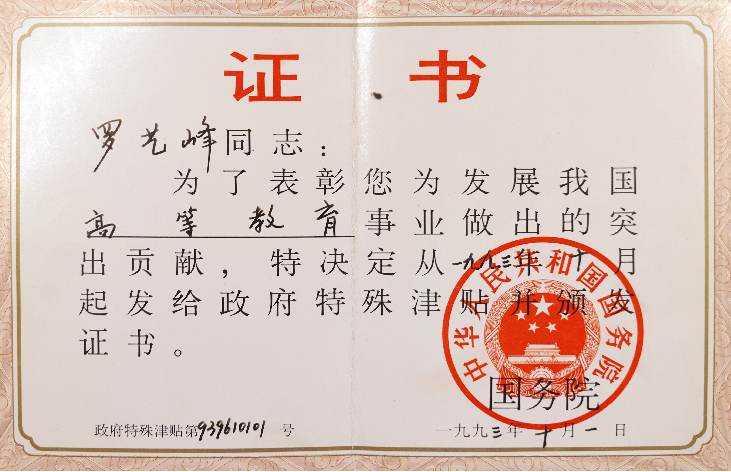 证书
罗艺峰同志：
为了表彰您为发展我国
高等教育事业做出的突
出贡献，特决定从一九九三年十月
起发给政府特殊津贴并颁发
证书。
中华人民共和国国务院
国务院
政府特殊津贴第939610101号
一九九三年十月一日